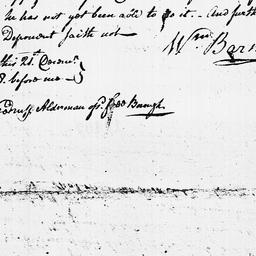 he has not yet been able to do it. – And furth
Deponent saith not
Wm. Barn
this 21st. Decemr.
8. before me
Alderman of. Boough.